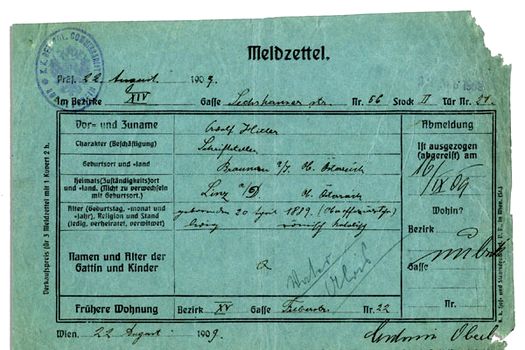 Meldzettel.
Präs. 22 August 1909.
Am Bezirke XIV Gasse Sechshauser str. Nr. 56 Stock II Tür Nr. 21.
Vor- und Zuname Adolf Hitler Abmeldung
Charakter (Beschäftigung) Schriftsteller Ist ausgezogen
(abgereist) am
Geburtsort und -land Braunau a/I. Ob. Österreich 16/IX 09
Heimats(Zuständigkeits)ort
und -land. (Nicht zu verwechseln
mit Geburtsort.) Linz a/D. Ob. Österreich Wohin?
Alter (Geburtstag, -monat und
-jahr), Religion und Stand
(ledig, verheiratet, verwitwet) geboren 20 April 1889
ledig katholisch Bezirk
Namen und Alter der
Gattin und Kinder Gasse
Nr.
Frühere Wohnung Bezirk XV Gasse Felber Nr. 22
Wien, 22 August 1909.
Verkaufspreis (für 3 Meldzettel mit 1 Kuvert 2 h.